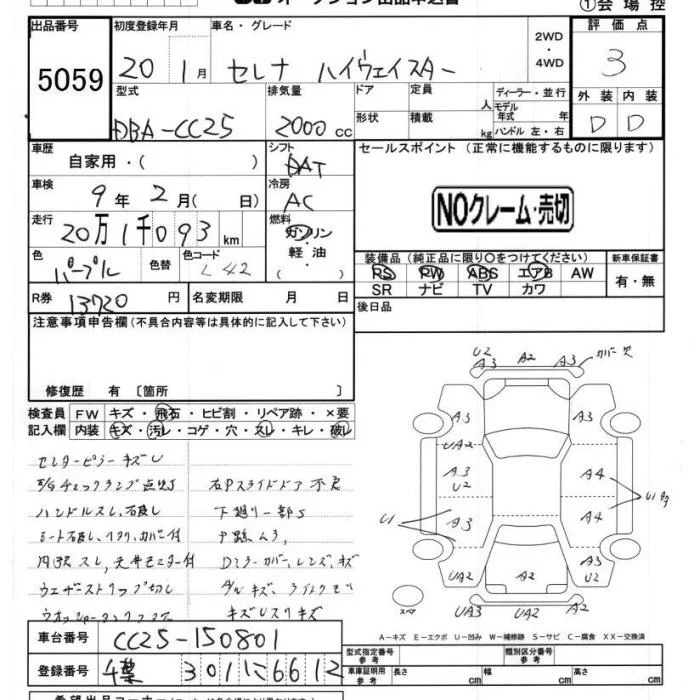 ①会場控
出品番号 初度登録年月 車名・グレード 2WD・4WD 評価点
5059 20 1月 セレナ ハイウェイスター 3
型式 排気量 ドア 定員 人 ディーラー・並行 外装 内装
DBA-CC25 2000 cc 形状 積載 kg モデル年式 年 ハンドル 左・右 D D
車歴 自家用・( ) シフト DAT セールスポイント (正常に機能するものに限ります)
車検 9年 2月( 日) 冷房 AC NOクレーム・売切
走行 20万1千093 km 燃料 ガソリン 軽油・( )
色 パープル 色替 色コード L42
装備品(純正品に限り○をつけてください) 新車保証書
PS PW ABS エアB AW 有・無
SR ナビ TV カワ
R券 13720 円 名変期限 月 日 後日品
注意事項申告欄(不具合内容等は具体的に記入して下さい)
修復歴 有 〔箇所 〕
検査員 FW キズ・飛石・ヒビ割・リペア跡・×要
記入欄 内装 キズ・汚レ・コゲ・穴・スレ・キレ・破レ
センターピラーキズし
E/Gチェックランプ点灯 右Pスライドドア不良
ハンドルスレ、破し 下廻り一部S
内張スレ、天井モニター付 Dミラーカバー、レンズ、キズ
ウェザーストリップ切し
U2 A3 A2 A3 カバー欠
A3 A3
UA2
A3 U2 A4
U1 A3 A4 U1
UA2 A2 A3 U2
スペア UA3 UA2 A2
A-キズ E-エクボ U-凹み W-補修跡 S-サビ C-腐食 XX-交換済
車台番号 CC25-150801
登録番号 千葉 301 に 6612
型式指定番号 参考 類別区分番号 参考
車庫証明用 参考 長さ 幅 高さ